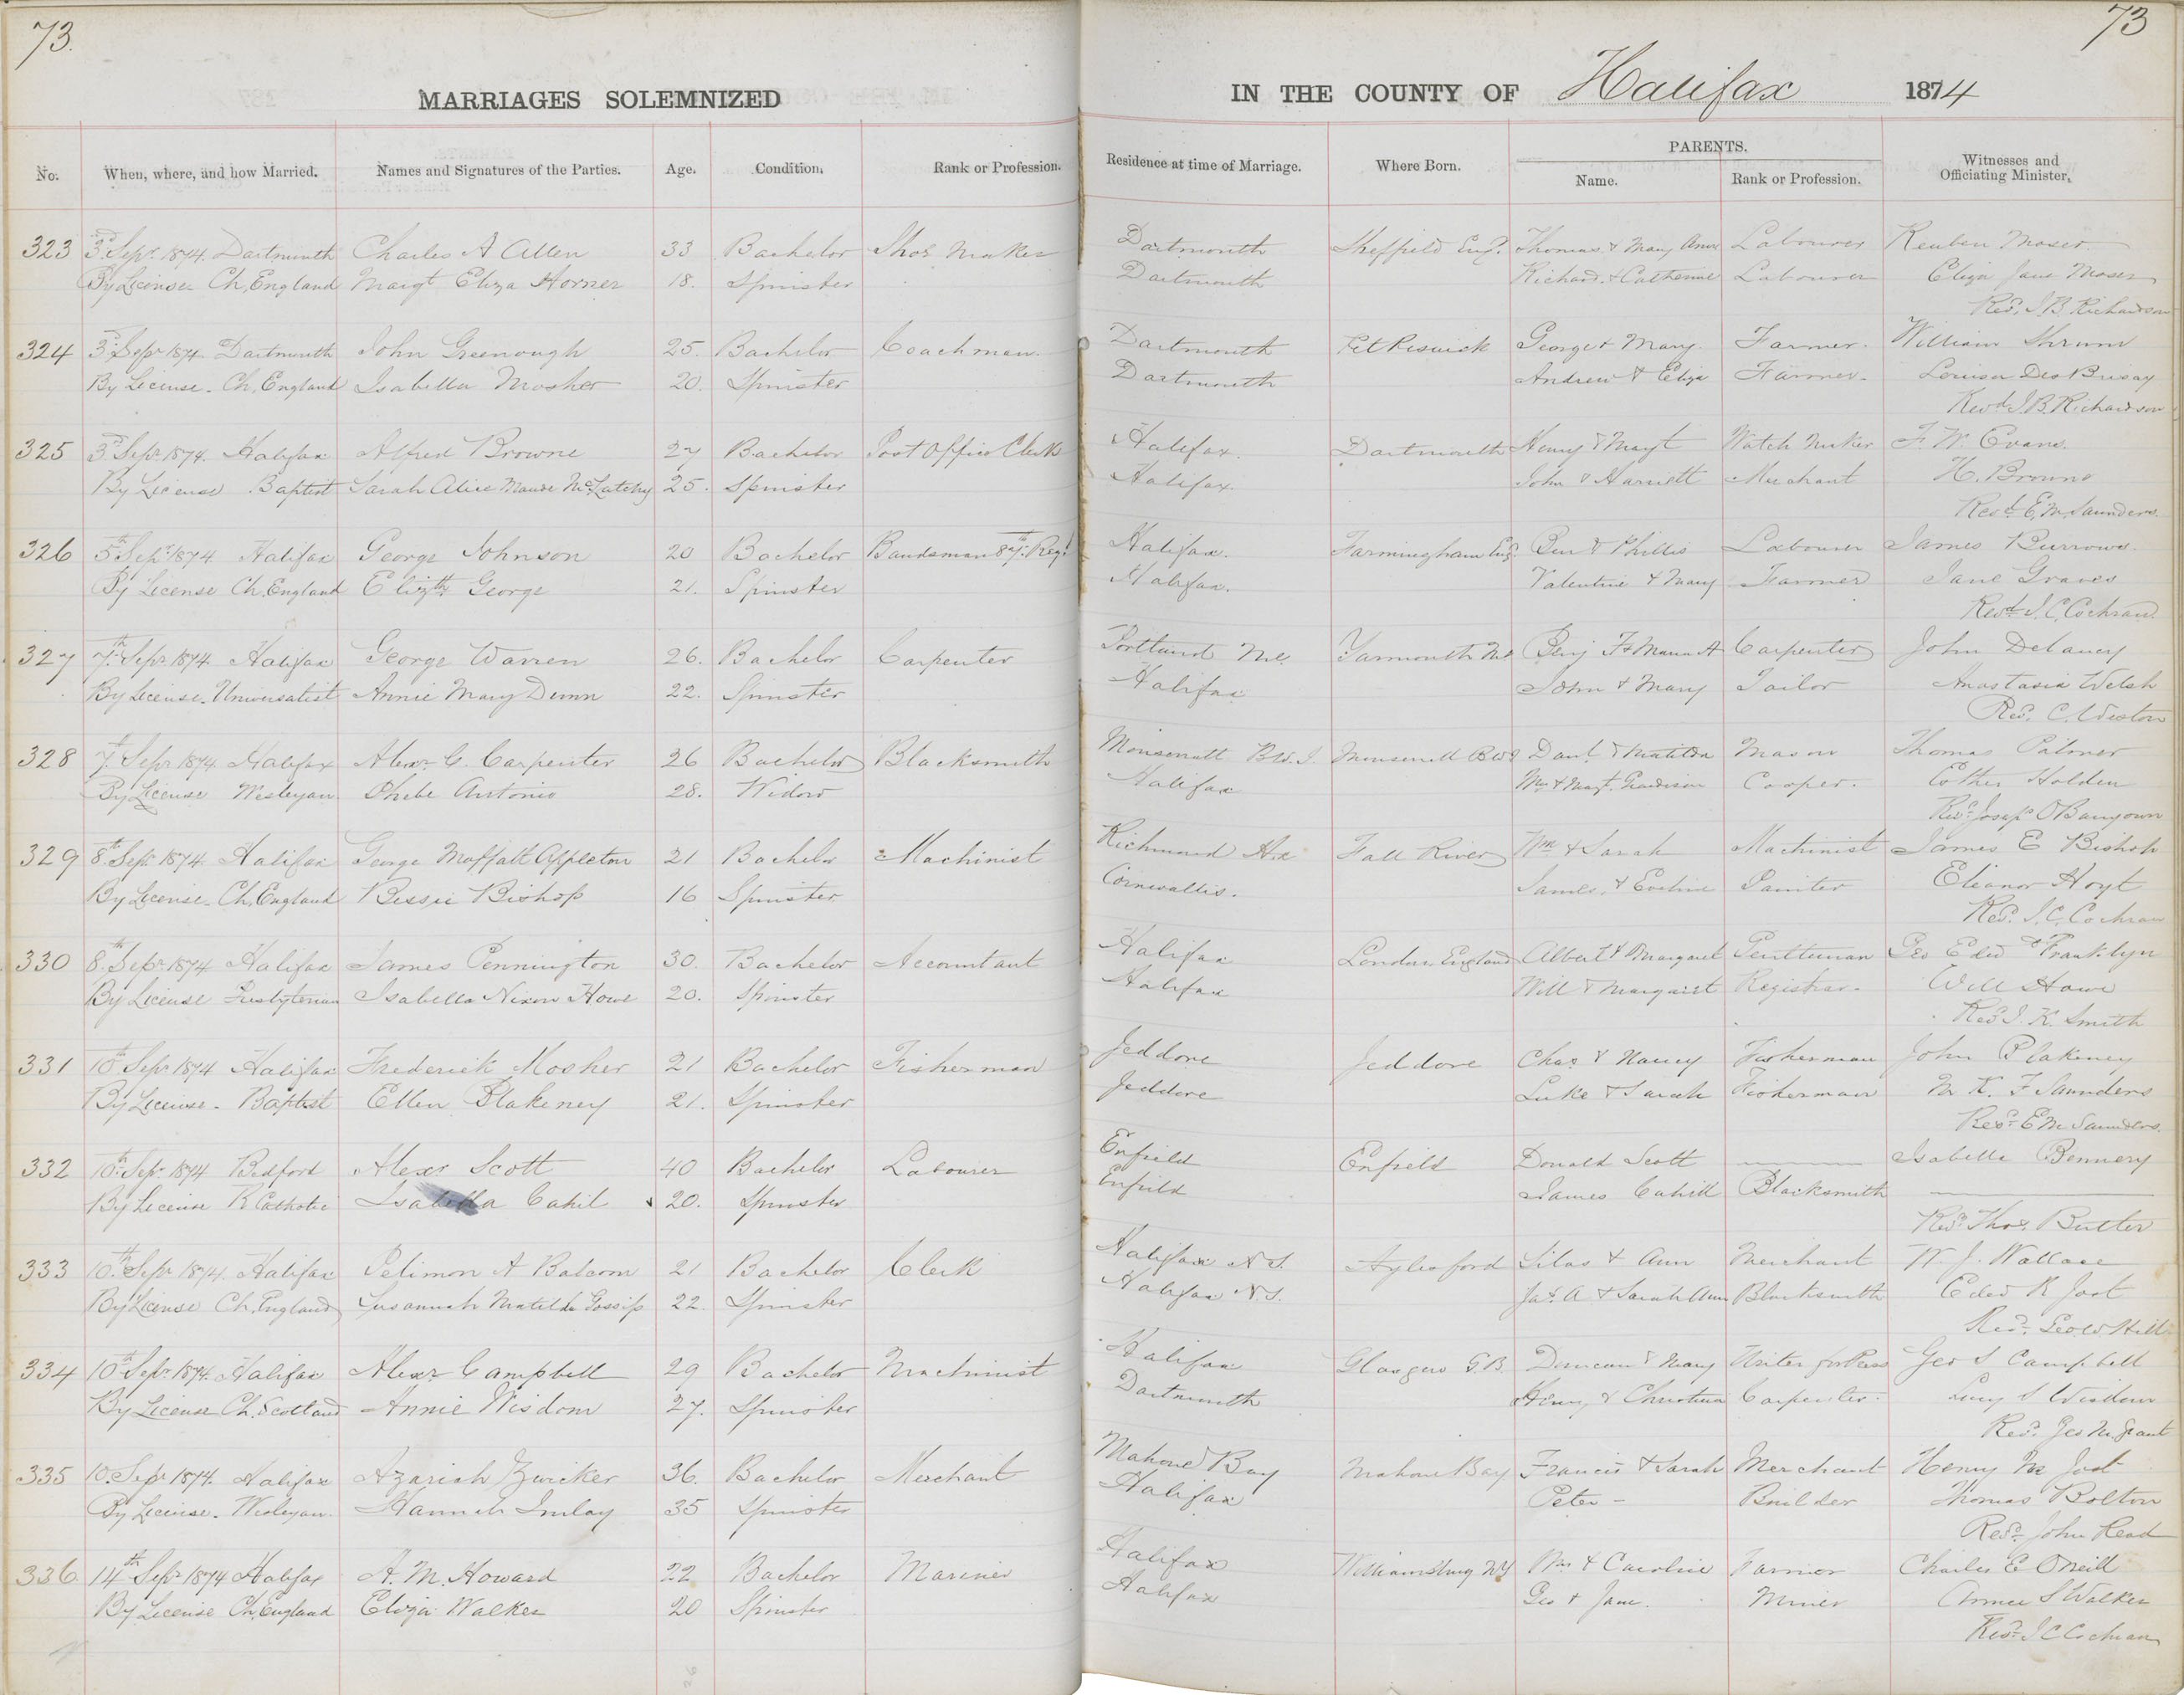 73.
73
MARRIAGES SOLEMNIZED
IN THE COUNTY OF Halifax 1874
No. When, where, and how Married. Names and Signatures of the Parties. Age. Condition. Rank or Profession. Residence at time of Marriage. Where Born. PARENTS. Name. Rank or Profession. Witnesses and Officiating Minister.
323 3rd Sepr 1874. Dartmouth Charles A Allen 33 Bachelor Shoe Maker Dartmouth Sheffield Eng. Thomas & Mary Ann Labourer Reuben Moser
By License Ch. England Margt Eliza Horner 18. Spinster Dartmouth Richard & Catherine Labourer Eliza Jane Moser
Revd. J.B. Richardson
324 3rd Sepr 1874. Dartmouth John Greenough 25. Bachelor Coachman. Dartmouth Pet Peswick George & Mary. Farmer. William Shrum
By License. Ch. England Isabella Mosher 20. Spinster Dartmouth Andrew & Eliza Farmer. Louisa DesBrisay
Revd J.B. Richardson
325 3rd Sepr 1874. Halifax Alfred Browne 27 Bachelor Post Office Clerk Halifax. Dartmouth Henry & Margt Watch Maker F. W. Evans.
By License Baptist Sarah Alice Maude McLatchy 25. Spinster Halifax. John & Harriett Merchant H. Browne
Revd E.M. Saunders.
326 5th Sepr 1874 Halifax George Johnson 20 Bachelor Bandsman 87th Regt Halifax. Farmingham Eng. Ben & Phillis Labourer James Burrows.
By License Ch. England Elizth George 21. Spinster Halifax. Valentine & Mary Farmer Jane Graves
Revd J.C. Cochran
327 7th Sepr 1874 Halifax George Warren 26. Bachelor Carpenter Portland Me. Yarmouth Benj F & Carpenter John Delaney
By License. Universalist Annie Mary Dunn 22. Spinster Halifax John & Mary Tailor Anastasia Welsh
Revd. C. Weston
328 7th Sepr 1874 Halifax Alexr. C. Carpenter 26 Bachelor Blacksmith Monserratt B.W.I. Monserratt B.W.I Danl. & Matilda Mason Thomas Palmer
By License Wesleyan Phebe Antonio 28. Widow Halifax Wm & Margt. Cooper. Esther Holden
Revd. Josep O Bangown
329 8th Sepr 1874 Halifax George Moffatt Appleton 21 Bachelor Machinist Richmond Hx Fall River Wm & Sarah Machinist James E Bishop
By License. Ch. England Bessie Bishop 16 Spinster Cornwallis. James & Eveline Painter Eleanor Hoyt
Revd. J.C. Cochran
330 8th Sepr 1874 Halifax James Pennington 30. Bachelor Accountant Halifax London, England Albert & Margaret Gentleman Geo Edwd Franklyn
By License Presbyterian Isabella Nixon Howe 20. Spinster Halifax Will & Margaret Registrar. Will Howe
Revd J. K. Smith
331 10th Sepr 1874 Halifax Frederick Mosher 21 Bachelor Fisherman Jeddore Jeddore Chas & Nancy Fisherman John Blakeney
By License. Baptist Ellen Blakeney 21. Spinster Jeddore Luke & Sarah Fisherman M K. F Saunders
Revd E M Saunders.
332 10th Sepr 1874 Bedford Alexr Scott 40 Bachelor Labourer Enfield Enfield Donald Scott Isabella Bennery
By License R Catholic Isabella Cahil 20. Spinster Enfield James Cahill Blacksmith
Revd Thos. Butler
333 10th Sepr 1874. Halifax Pelimon A Balcom 21 Bachelor Clerk Halifax N.S. Aylesford Silas & Ann Merchant W. J. Wallace
By License Ch. England Susannah Matilda Gossip 22. Spinster Halifax N.S. Jas. A & Sarah Ann Blacksmith Edwd R Jost
Revd. Geo W Hill
334 10th Sepr 1874. Halifax Alexr Campbell 29 Bachelor Machinist Halifax Glasgow G.B. Duncan & Mary Writer for Press Geo S Campbell
By License Ch. Scotland Annie Wisdom 27. Spinster Dartmouth Henry & Christina Carpenter. S Wisdom
Revd. Geo M. Grant
335 10. Sepr 1874. Halifax Azariah Zwicker 36. Bachelor Merchant Mahone Bay Mahone Bay Francis & Sarah Merchant Henry M Jost
By License. Wesleyan. Hannah Imlay 35 Spinster Halifax Peter - Builder Thomas Bolton
Revd. John Read
336 14th Sepr 1874 Halifax A. M. Howard 22 Bachelor Mariner Halifax Williamsburg NY Wm & Caroline Farmer Charles E ONeill
By License Ch. England Eliza Walker 20 Spinster Halifax Geo & Jane. Miner Annie S Walker
Revd. J C Cochran